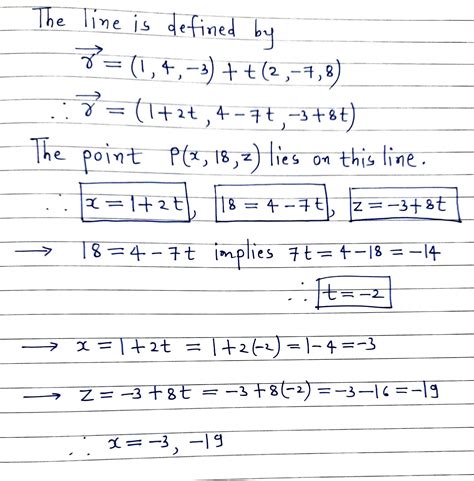 The line is defined by
r⃗ = (1, 4, -3) + t(2, -7, 8)
∴ r⃗ = (1+2t, 4-7t, -3+8t)
The point P(x, 18, z) lies on this line.
∴ x = 1+2t, 18 = 4-7t, z = -3+8t
→ 18 = 4-7t implies 7t = 4-18 = -14
∴ t = -2
→ x = 1+2t = 1+2(-2) = 1-4 = -3
→ z = -3+8t = -3+8(-2) = -3-16 = -19
∴ x = -3, -19